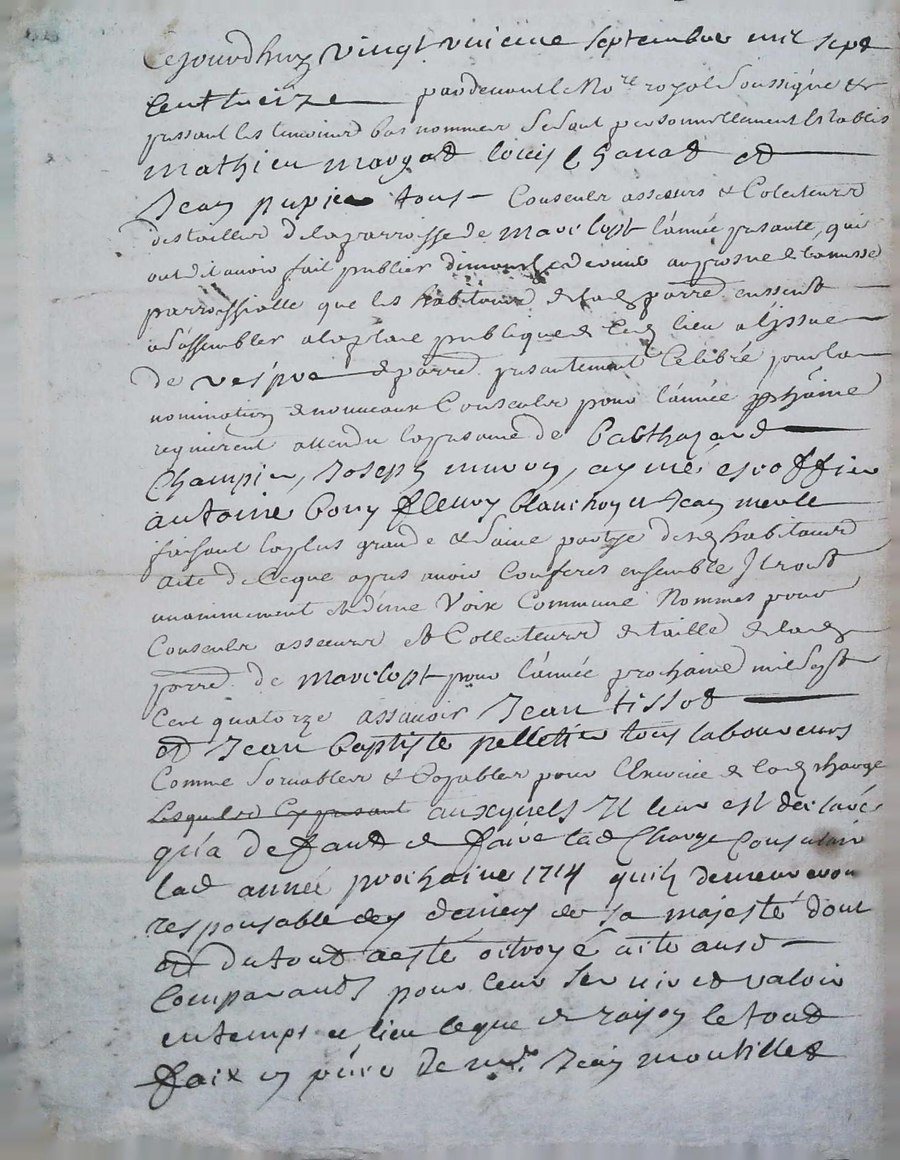 Cejourdhuy vingt unieme septembre mil sept
cent treize pardevant le No.re royal soussigné &
presant les temoins bas nommes se sont personnellement establis
mathieu margot louis chanat et
Jean pupier tous Consculs asseeurs & Colecteurs
des tailles de la parroisse de marclopt l'année presante, qui
ont dit avoir fait publier dimanche dernier au prosne de la messe
parroissialle que les habitans de lad. parre eussent
a s'assembler a la place publique du lieu a l'issue
de vespre parre. presentement Celebré pour la
nomination de nouveaux Consculs pour l'année pchaine
requierent attendu la presance de balthazard
Champier, Joseph muron, aymé escoffier
antoine bony fleury blanchon et Jean merle
faisant la plus grande & saine partye desd. habitans
acte de ce que apres avoir Conferes ensemble Ils ont
unanimement et d'une Voix Commune Nommes pour
Consculs asseeurs et Collecteurs de taille de lad.
parre. de marclopt pour l'année prochaine mil sept
Cent quatorze assavoir Jean tissot
et Jean baptiste pelletier tous laboureurs
Comme solvables & Capables pour l'exercice de lad. charge
Lesquels auxquels Il leur est declaré
qu'a deffaut de faire lad Charge Consulaire
lad année prochaine 1714 quils demeureront
responsable des deniers de sa majesté dont
et du tout a esté oitroyé acte ausd
Comparants pour leur servir et valoir
en temps et lieu ce que de raison le tout
faix en p de md. Jean montillet